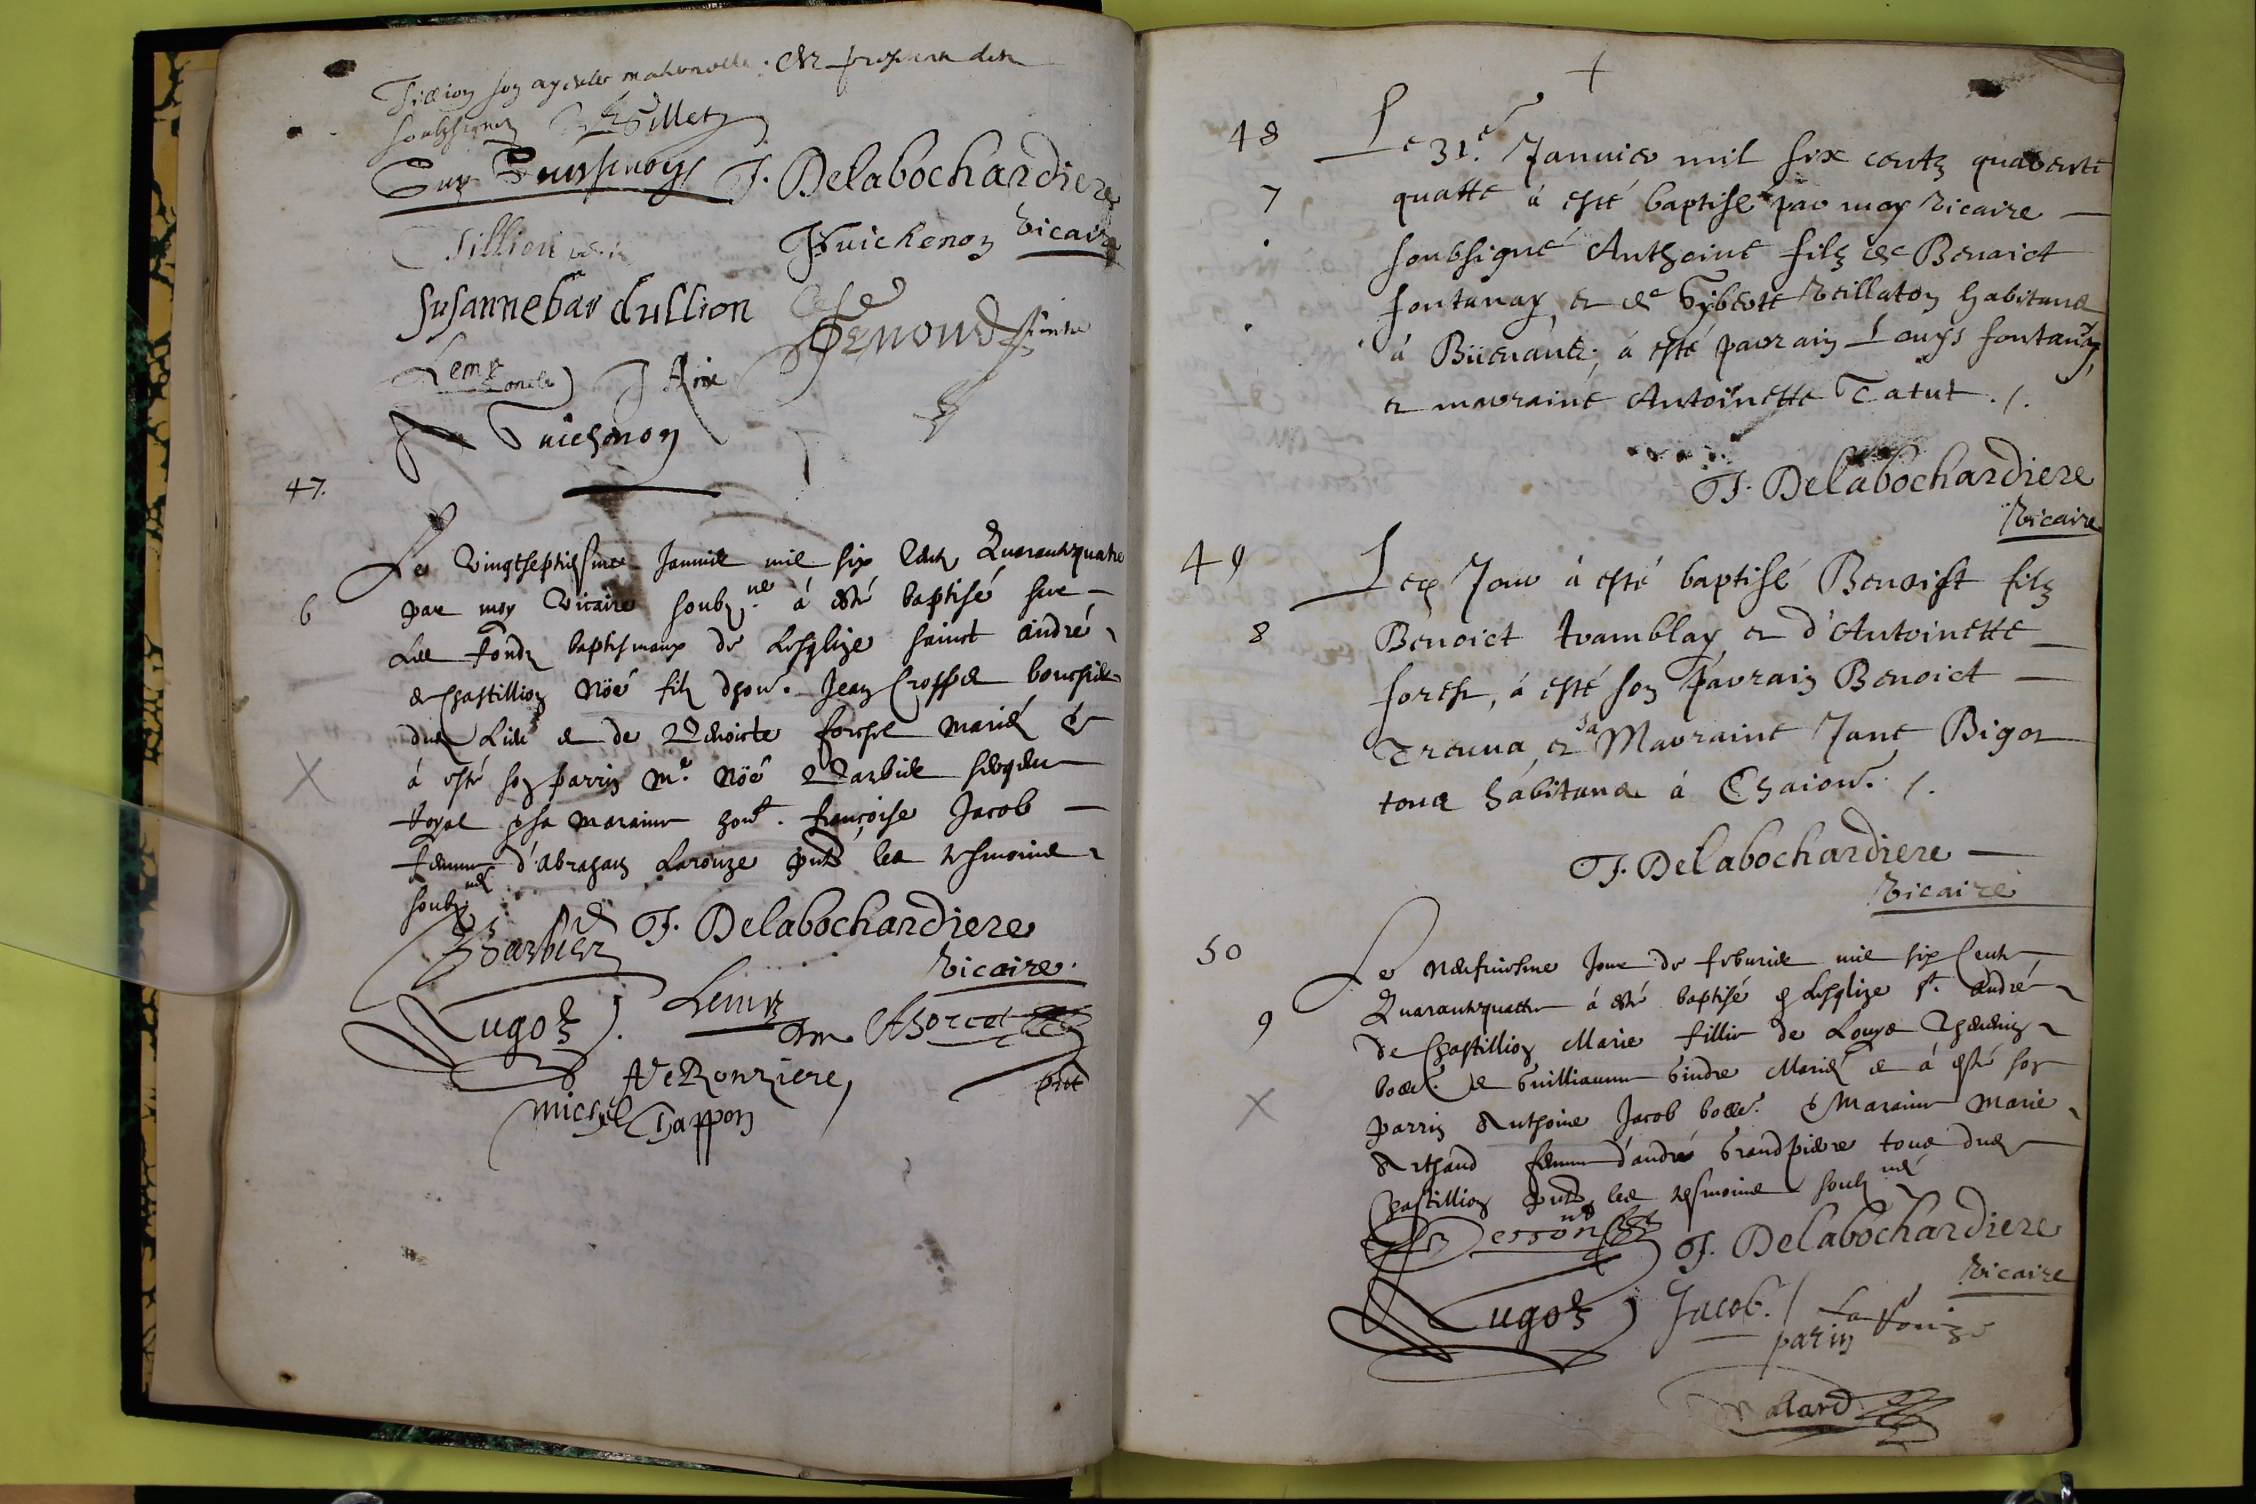 Tillion son ayeule maternelle. Et presents des
soubsignez Gillet
Guy J. Delabochardiere
Vicaire
Tillion Guichenon
Susanne bardullion
Genoud
Lemz J. Aim
Guichenon
47.
Le vingtseptiesme Janvier mil six cent Quarantequatre
6 par moy vicaire soubz.né à esté baptisé sur
Les fondz baptismaux de Lesglize sainct André
de Chastillion Nöé filz dhon. Jean Crosset bouchier
dud Lieu et de Benoicte forest mariéz et
à esté son parrin Me. Nöé Barbier sergent
Royal et sa maraine hon. françoise Jacob
femme d'Abraham Larouze pnts les tesmoins
soubz.nés
Barbier J. Delabochardiere
Vicaire.
Lugoz Lemz
De Ronziere,
Michel Tappon
48 Le 31.e Januier mil six centz quarente
7 quatte à esté baptisé par moy vicaire
soubsigné Anthoine filz de Benoict
fontanay et de Gyberte Reillaton habitans
à Büenans; à esté parrain Louys fontanay,
et marraine Antoinette Tatut ./.
J. Delabochardiere
Vicaire
49 Led Jour à esté baptisé Benoist filz
8 Benoict tramblay et d'Antoinette
forest, à esté son parrain Benoict
Treuua, et sa Marraine Jane Bigot
tous habitans à Chaiour. /.
J. Delabochardiere
Vicaire
50 Le Neufuiesme Jour de feburier mil six Cent
Quarantequattre à esté baptisé en Lesglize st. André
9 de Chastillion Marie fillie de Louys
et Guilliaume Gindre Mariéz et à esté son
parrin Anthoine Jacob et Maraine Marie
Arthaud femme d'andré Grandpierre tous dud
Chastillion pnts les tesmoins soubz.nés
J. Delabochardiere
Vicaire
Lugoz Jacob. /
parin